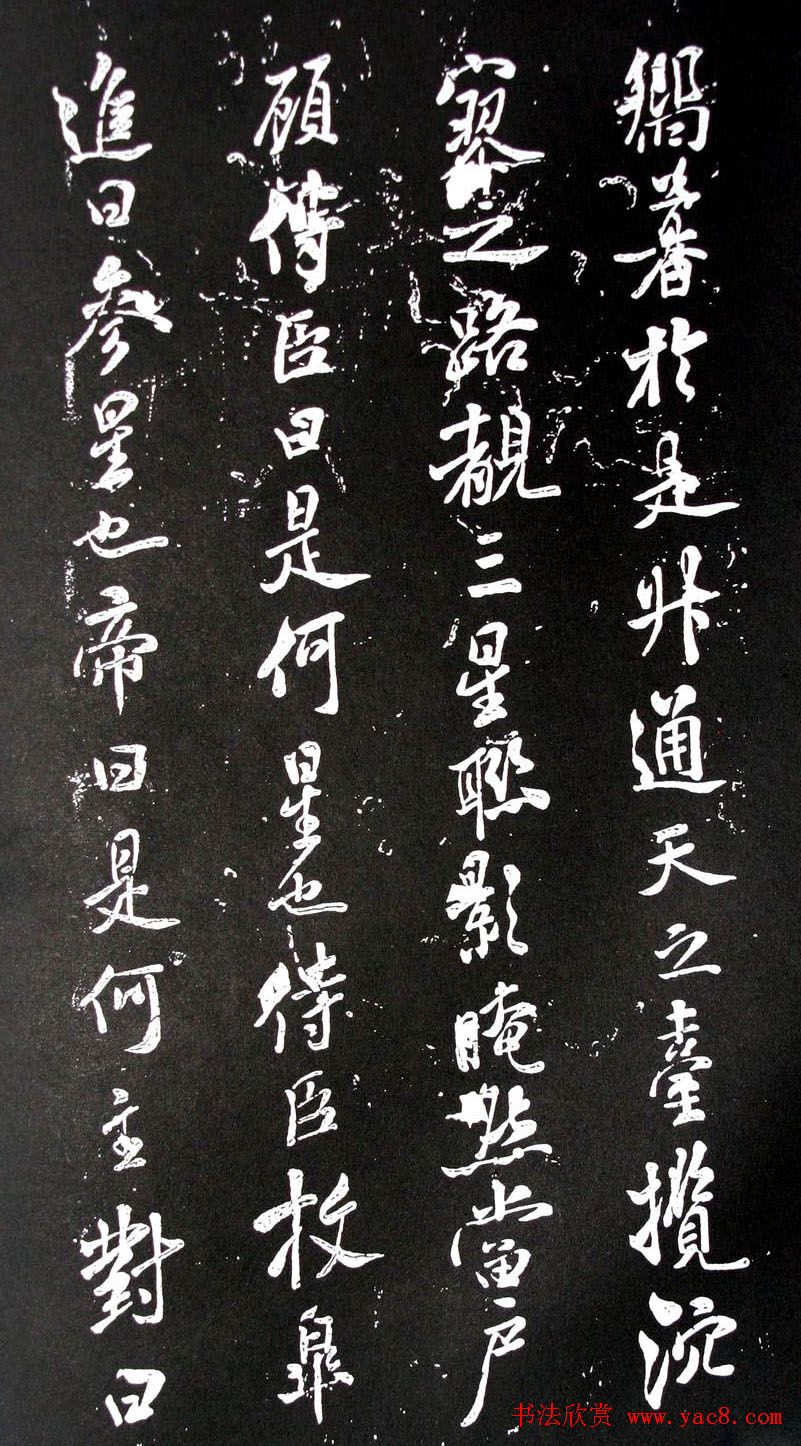 嚮暮於是升通天之臺攬泬
寥之路覩三星聯影晻然當户
顧侍臣曰是何星也侍臣枚臯
進曰參星也帝曰是何主對曰
书法欣赏 www.yac8.com